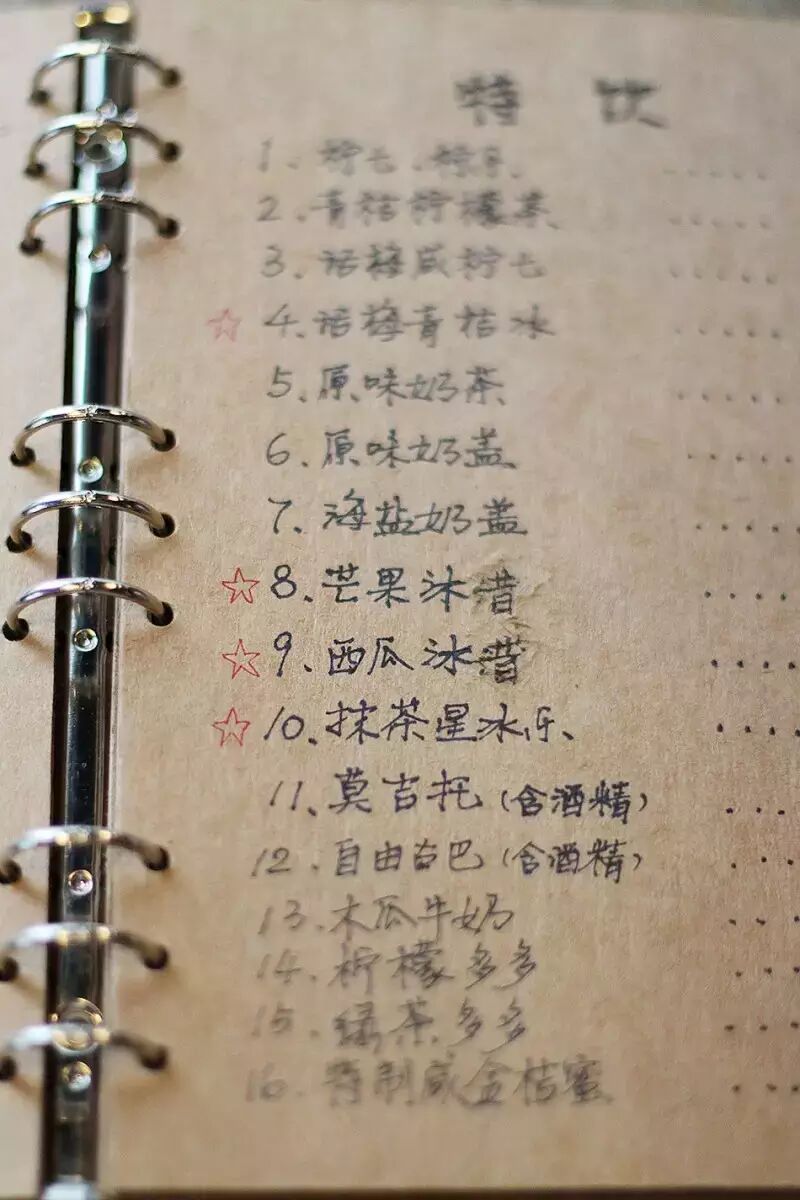 特饮
1、柠七、柠乐
2、青桔柠檬茶
3、话梅咸柠七
☆4、话梅青桔冰
5、原味奶茶
6、原味奶盖
7、海盐奶盖
☆8、芒果沐昔
☆9、西瓜冰昔
☆10、抹茶星冰乐、
11、莫吉托(含酒精)
12、自由古巴(含酒精)
13、木瓜牛奶
14、柠檬多多
15、绿茶多多
16、特制咸金桔蜜